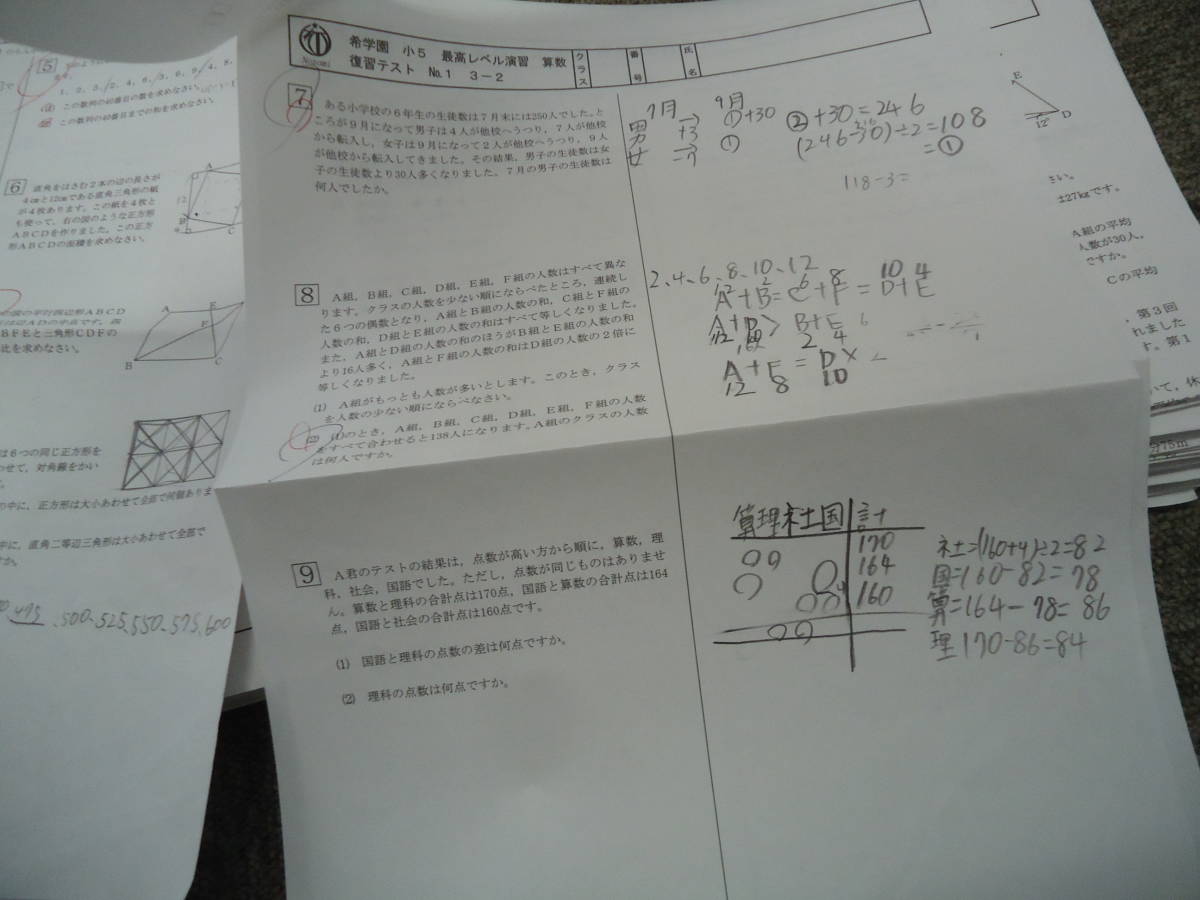 希学園 小5 最高レベル演習 算数
復習テスト No.1 3-2
クラス
番号
氏名
Nozomi
7
ある小学校の6年生の生徒数は7月末には250人でした。と
ころが9月になって男子は4人が他校へうつり,7人が他校
から転入し,女子は9月になって2人が他校へうつり,9人
が他校から転入してきました。その結果,男子の生徒数は女
子の生徒数より30人多くなりました。7月の男子の生徒数は
何人でしたか。
7月 9月
男 → ①+30
+3
女 → ①
②+30=246
(246-30)÷2=108
=①
118-3=
8
A組,B組,C組,D組,E組,F組の人数はすべて異な
ります。クラスの人数を少ない順にならべたところ,連続し
た6つの偶数となり,A組とB組の人数の和,C組とF組の
人数の和,D組とE組の人数の和はすべて等しくなりました。
また,A組とD組の人数の和のほうがB組とE組の人数の和
より16人多く,A組とF組の人数の和はD組の人数の2倍に
等しくなりました。
(1) A組がもっとも人数が多いとします。このとき,クラス
を人数の少ない順にならべなさい。
(2) (1)のとき,A組,B組,C組,D組,E組,F組の人数
をすべて合わせると138人になります。A組のクラスの人数
は何人ですか。
2、4、6、8、10、12
12 2 6 8 10 4
A+B=C+F=D+E
A+D> B+E
12 10 2 4
A+F=D×2
12 8 10
9
A君のテストの結果は,点数が高い方から順に,算数,理
科,社会,国語でした。ただし,点数が同じものはありませ
ん。算数と理科の合計点は170点,国語と算数の合計点は164
点,国語と社会の合計点は160点です。
(1) 国語と理科の点数の差は何点ですか。
(2) 理科の点数は何点ですか。
算理社国計
170
164
160
社=(160+4)÷2=82
国=160-82=78
算=164-78=86
理170-86=84
5
1, 2, 3,/2, 4, 6,/3, 6, 9,/4, 8,
この数列の40番目の数を求めなさい。
この数列の40番目までの和を求めなさい。
6
直角をはさむ2本の辺の長さが
4cmと12cmである直角三角形の紙
が4枚あります。この紙を4枚と
も使って,右の図のような正方形
ABCDを作りました。この正方
形ABCDの面積を求めなさい。
A
12
B
C
の図の平行四辺形ABCD
は辺ADの中点です。四
BFEと三角形CDFの
比を求めなさい。
A
E
F
B
C
は6つの同じ正方形を
わせて,対角線をかい
の中に,正方形は大小あわせて全部で何個ありま
中に,直角二等辺三角形は大小あわせて全部で
すか。
475、500、525、550、575、600
E
D
12
さい。
は27kgです。
A組の平均
人数が30人,
ですか。
Cの平均
第3回
れました
す。第1
いて,休
75m